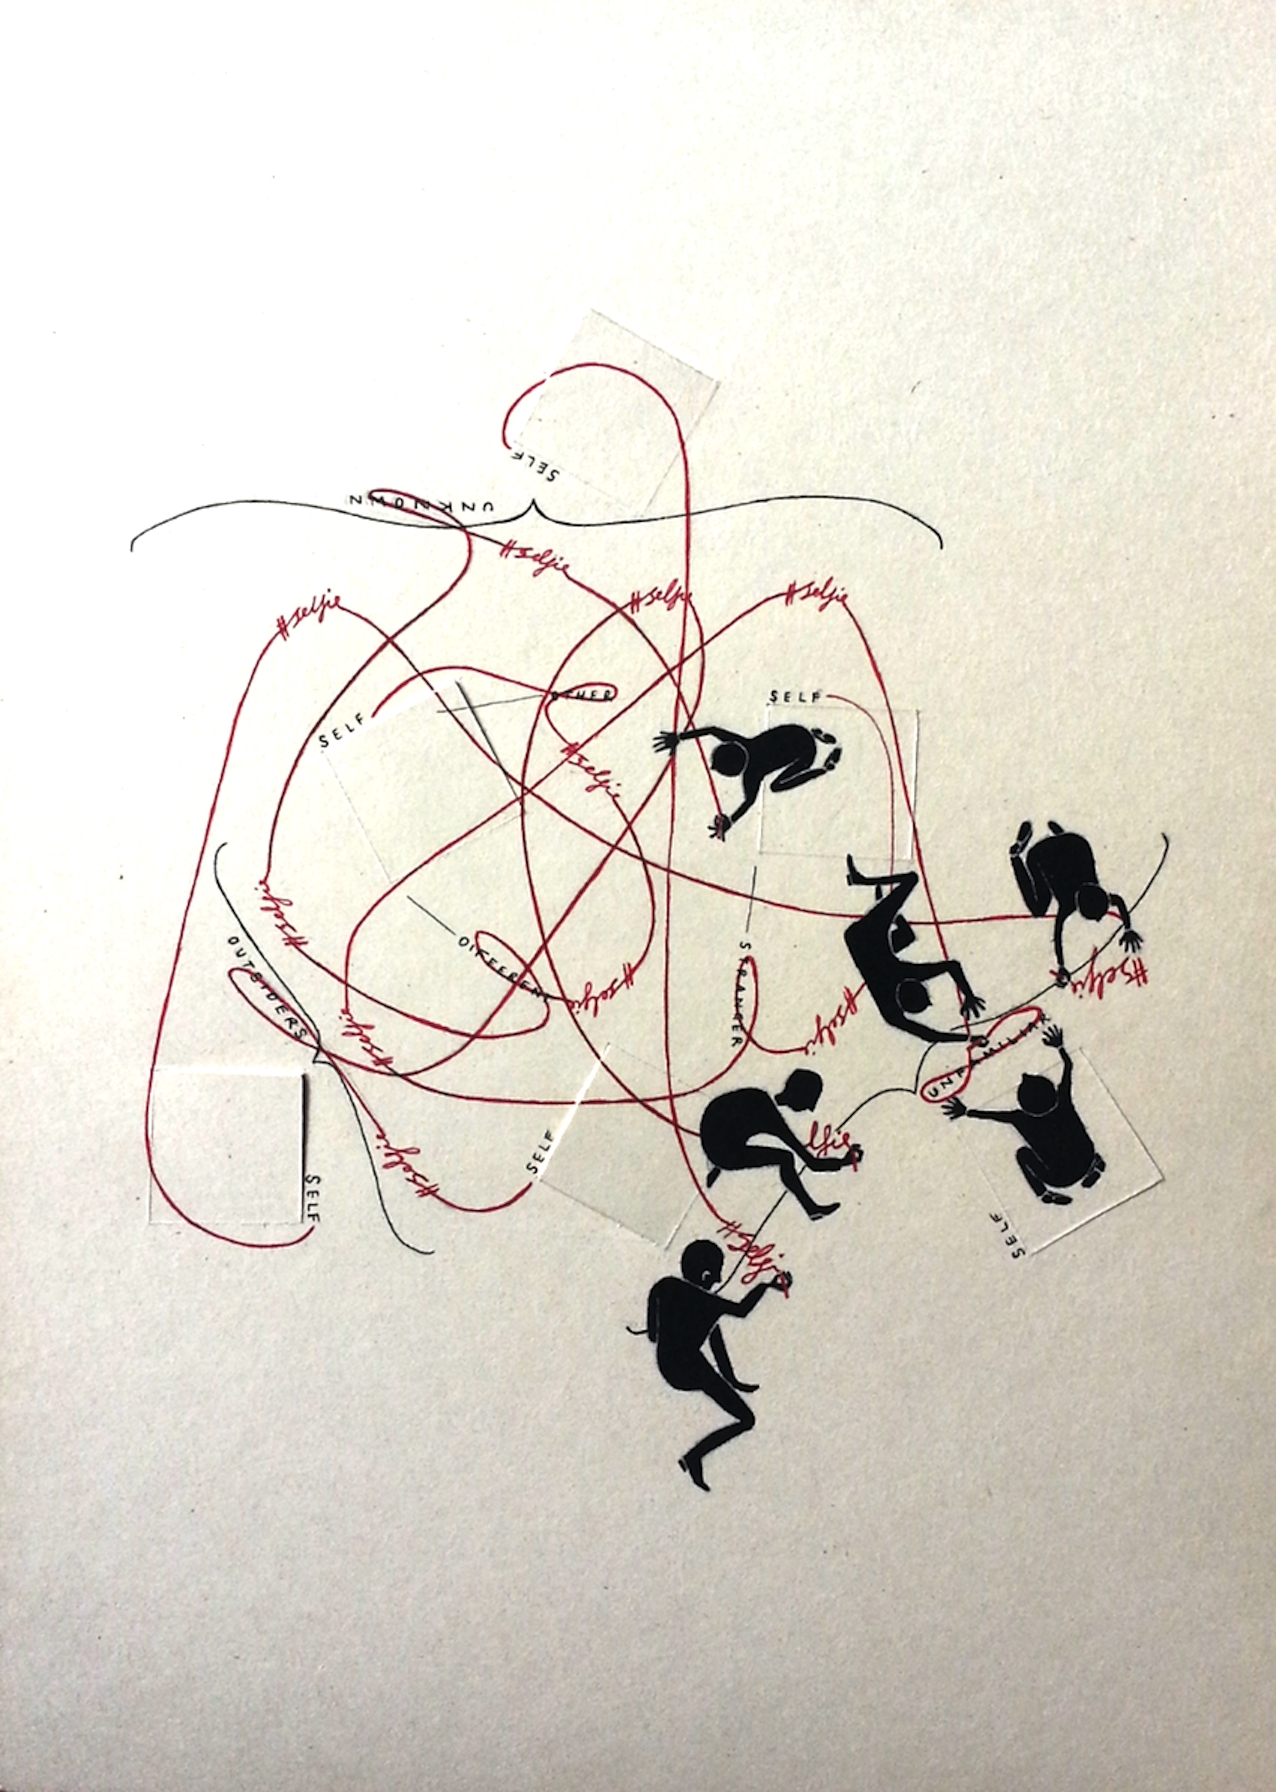 SELF
UNKNOWN
#selfie
#selfie
#selfie
#selfie
OTHER
SELF
SELF
#selfie
#selfie
OUTSIDERS
DIFFERENT
STRANGER
#selfie
#selfie
#selfie
#selfie
UNFAMILIAR
SELF
#selfie
lfie
SELF
SELF
#selfie